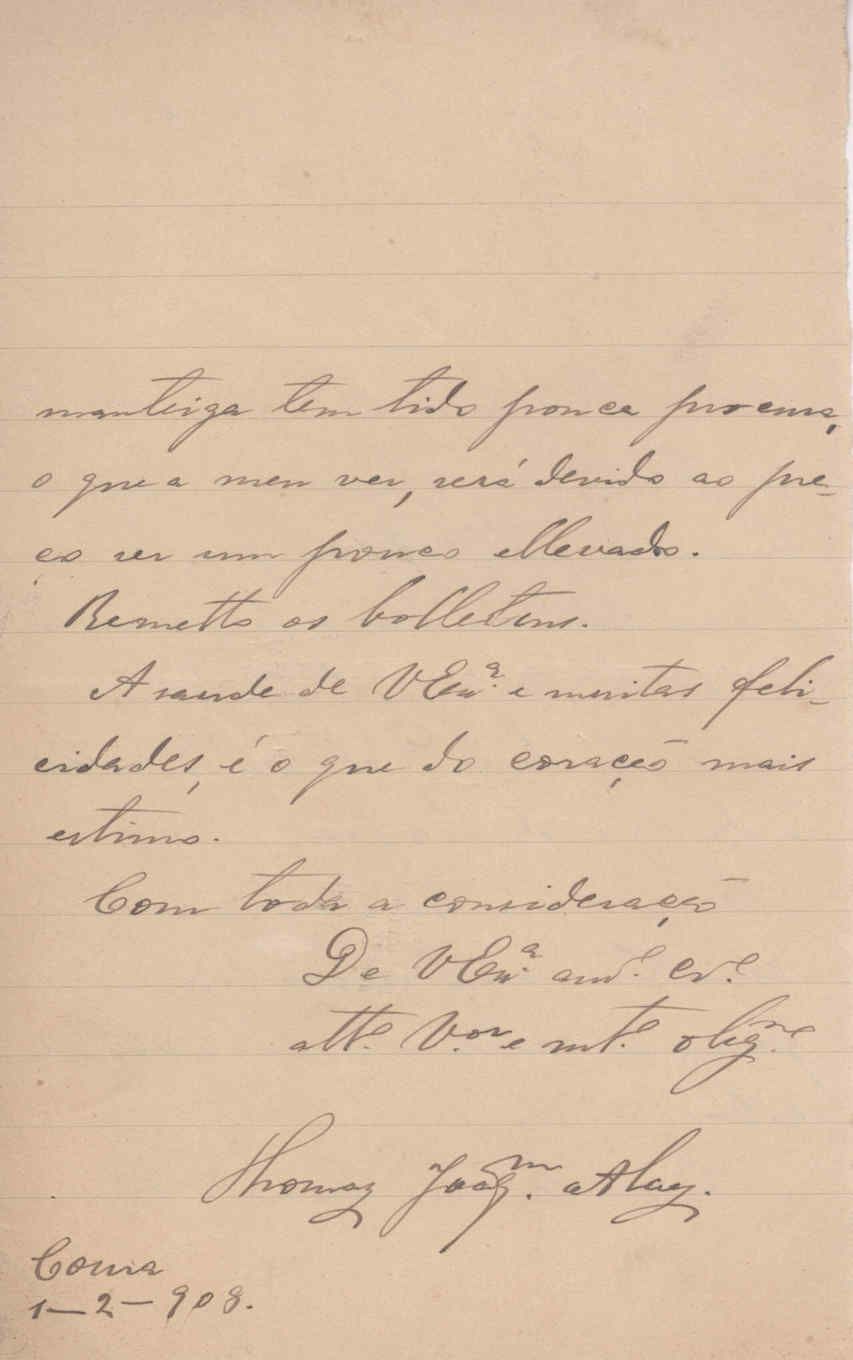 manteiga tem tido pouca procura,
o que a meu ver, será devido ao pre-
ço ser um pouco ellevado.
Remetto os bolletins.
A saude de VEx.ª e muitas feli-
cidades, é o que do coração mais
estimo.
Com toda a consideração
De VEx.ª am.º cr.º
att.º V.or e mt.º obig.mo
Thomaz Joaq.m
Coura
1-2-908.